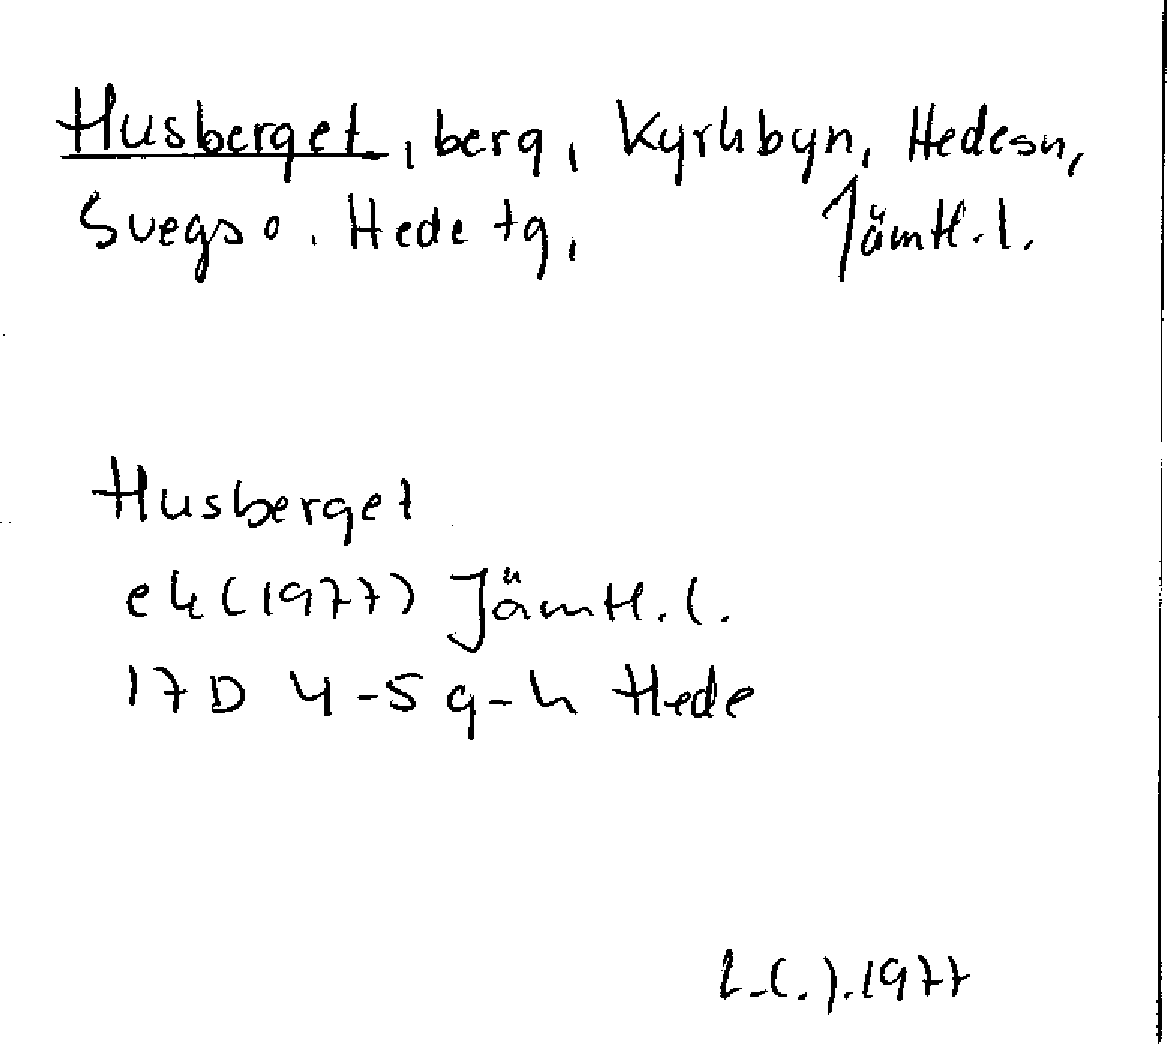 Husberget, berg, Kyrkbyn, Hedesn,
Svegs o. Hede tg, Jämtl. l.
Husberget
ek (1977) Jämtl. l.
17D 4-5 g-h Hede
1977